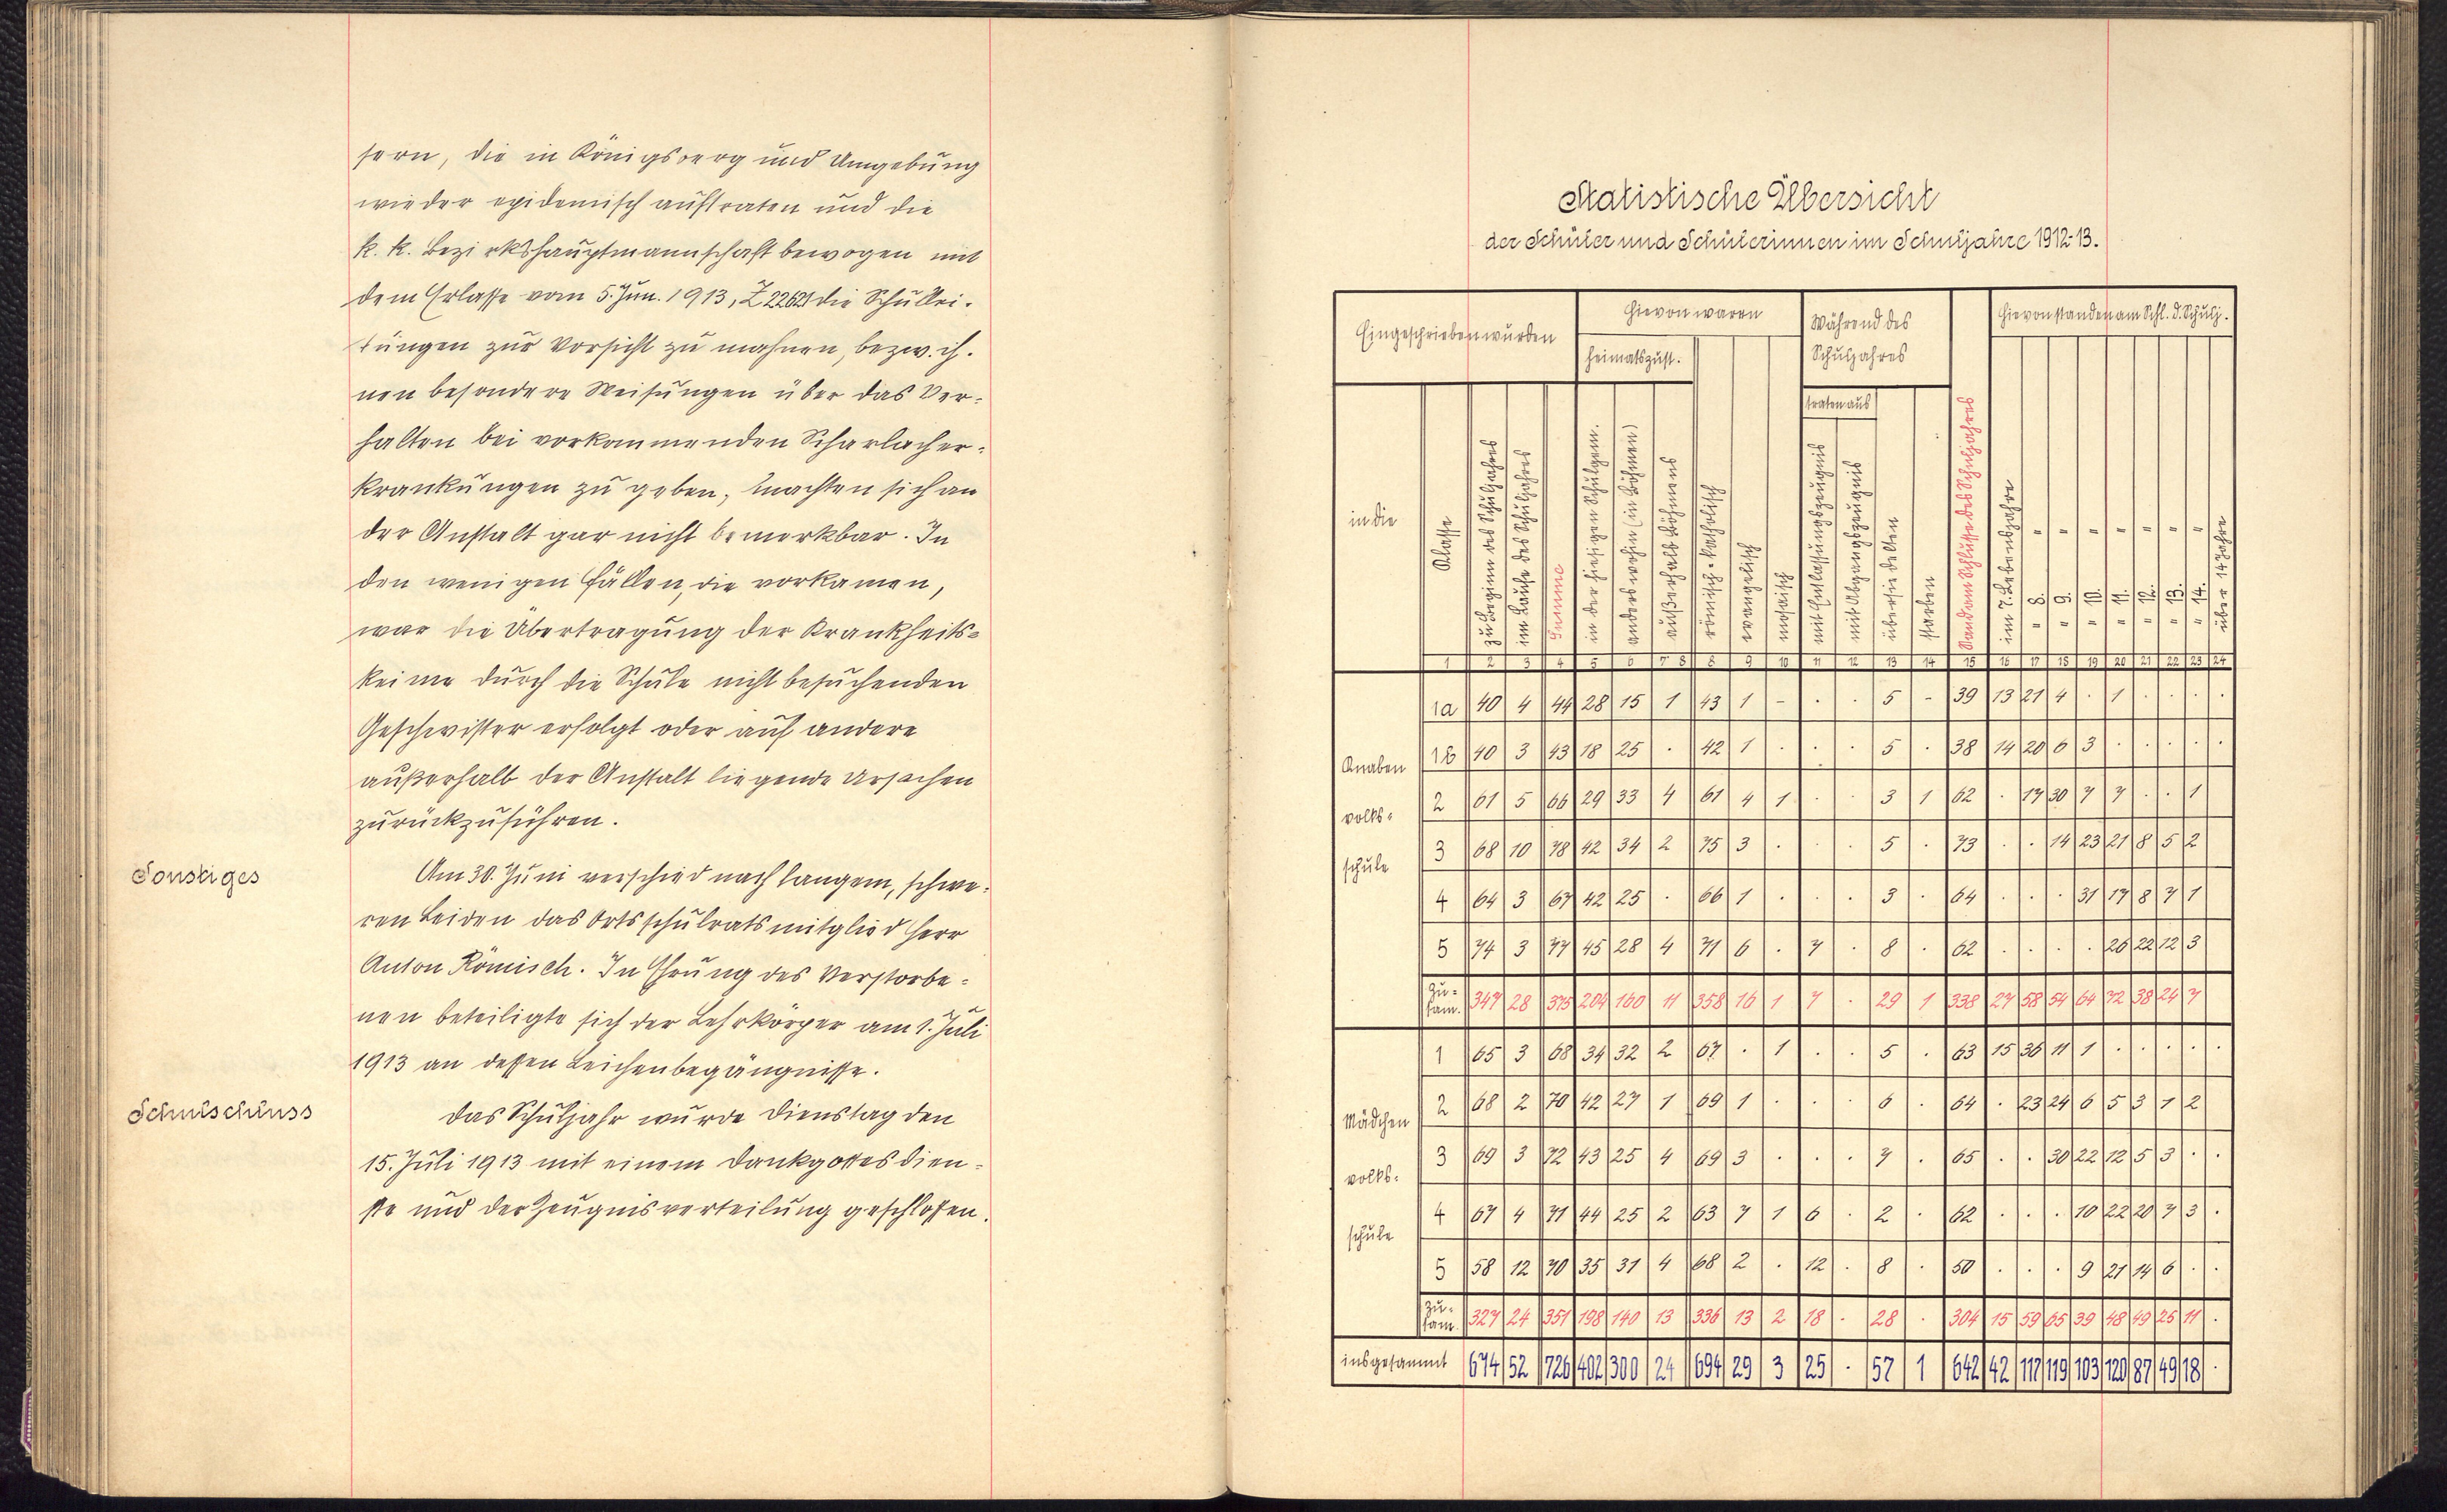 sern, die in Königsberg und Umgebung
wieder epidemisch auftraten und die
k. k. Bezirkshauptmannschaft bewogen mit
dem Erlasse vom 5. Jun. 1913, Z 22621 die Schullei-
tungen zur Vorsicht zu mahnen, bezw. ih-
nen besondere Weisungen über das Ver-
halten bei vorkommenden Scharlacher-
krankungen zu geben, machten sich an
der Anstalt gar nicht bemerkbar. In
den wenigen Fällen, die vorkamen,
war die Übertragung der Krankheits-
keime durch die Schule nicht besuchenden
Geschwister erfolgt oder auf andere
außerhalb der Anstalt liegende Ursachen
zurückzuführen.
Sonstiges
Am 30. Juni verschied nach langem, schwe-
ren Leiden das Ortsschulratsmitglied Herr
Anton Römisch. In Ehrung des Verstorbe-
nen beteiligte sich der Lehrkörper am 1. Juli
1913 an dessen Leichenbegängnisse.
Schulschluss
Das Schuljahr wurde Dienstag den
15. Juli 1913 mit einem Dankgottesdien-
ste und der Zeugnisverteilung geschlossen.
Statistische Übersicht
der Schüler und Schülerinnen im Schuljahre 1912-13.
Eingeschrieben wurden
Hievon waren
Während des
Schuljahres
Hievon standen am Schl. d. Schulj.
heimatszust.
traten aus
in die
Klasse
zu Beginn des Schuljahres
im Laufe des Schuljahres
Summe
in der hiesigen Schulgem.
anderswohin (in Böhmen)
außerhalb Böhmens
römisch-katholisch
evangelisch
mosaisch
mit Entlassungszeugnis
mit Abgangszeugnis
übersiedelten
starben
Stand am Schlusse des Schuljahres
im 7. Lebensjahre
" 8. "
" 9. "
" 10. "
" 11. "
" 12. "
" 13. "
" 14. "
über 14 Jahre
1 2 3 4 5 6 7 8 8 9 10 11 12 13 14 15 16 17 18 19 20 21 22 23 24
Knaben
volks-
schule
1a 40 4 44 28 15 1 43 1 - . . 5 - 39 13 21 4 . 1 . . . .
1b 40 3 43 18 25 . 42 1 . . . 5 . 38 14 20 6 3 . . . . .
2 61 5 66 29 33 4 61 4 1 . . 3 1 62 . 17 30 7 7 . . 1
3 68 10 78 42 34 2 75 3 . . . 5 . 73 . . 14 23 21 8 5 2
4 64 3 67 42 25 . 66 1 . . . 3 . 64 . . . 31 17 8 7 1
5 74 3 77 45 28 4 71 6 . 7 . 8 . 62 . . . . 26 22 12 3
zu-
sam. 347 28 375 204 160 11 358 16 1 7 . 29 1 338 27 58 54 64 72 38 24 7
Mädchen
volks-
schule
1 65 3 68 34 32 2 67 . 1 . . 5 . 63 15 36 11 1 . . . . .
2 68 2 70 42 27 1 69 1 . . . 6 . 64 . 23 24 6 5 3 1 2
3 69 3 72 43 25 4 69 3 . . . 7 . 65 . . 30 22 12 5 3 . .
4 67 4 71 44 25 2 63 7 1 6 . 2 . 62 . . . 10 22 20 7 3 .
5 58 12 70 35 31 4 68 2 . 12 . 8 . 50 . . . 9 21 14 6 . .
zu-
sam. 327 24 351 198 140 13 336 13 2 18 . 28 . 304 15 59 65 39 48 49 25 11 .
insgesammt 674 52 726 402 300 24 694 29 3 25 . 57 1 642 42 117 119 103 120 87 49 18 .